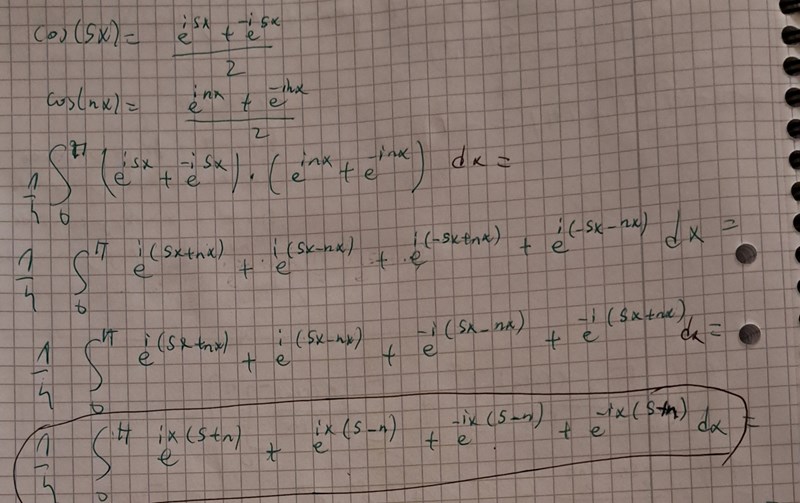 cos(5x) = (e^{i5x} + e^{-i5x})/2
cos(nx) = (e^{inx} + e^{-inx})/2
1/4 ∫_0^π (e^{i5x} + e^{-i5x}) · (e^{inx} + e^{-inx}) dx =
1/4 ∫_0^π e^{i(5x+nx)} + e^{i(5x-nx)} + e^{i(-5x+nx)} + e^{i(-5x-nx)} dx =
1/4 ∫_0^π e^{i(5x+nx)} + e^{i(5x-nx)} + e^{-i(5x-nx)} + e^{-i(5x+nx)} dx =
1/4 ∫_0^π e^{ix(5+n)} + e^{ix(5-n)} + e^{-ix(5-n)} + e^{-ix(5+n)} dx =